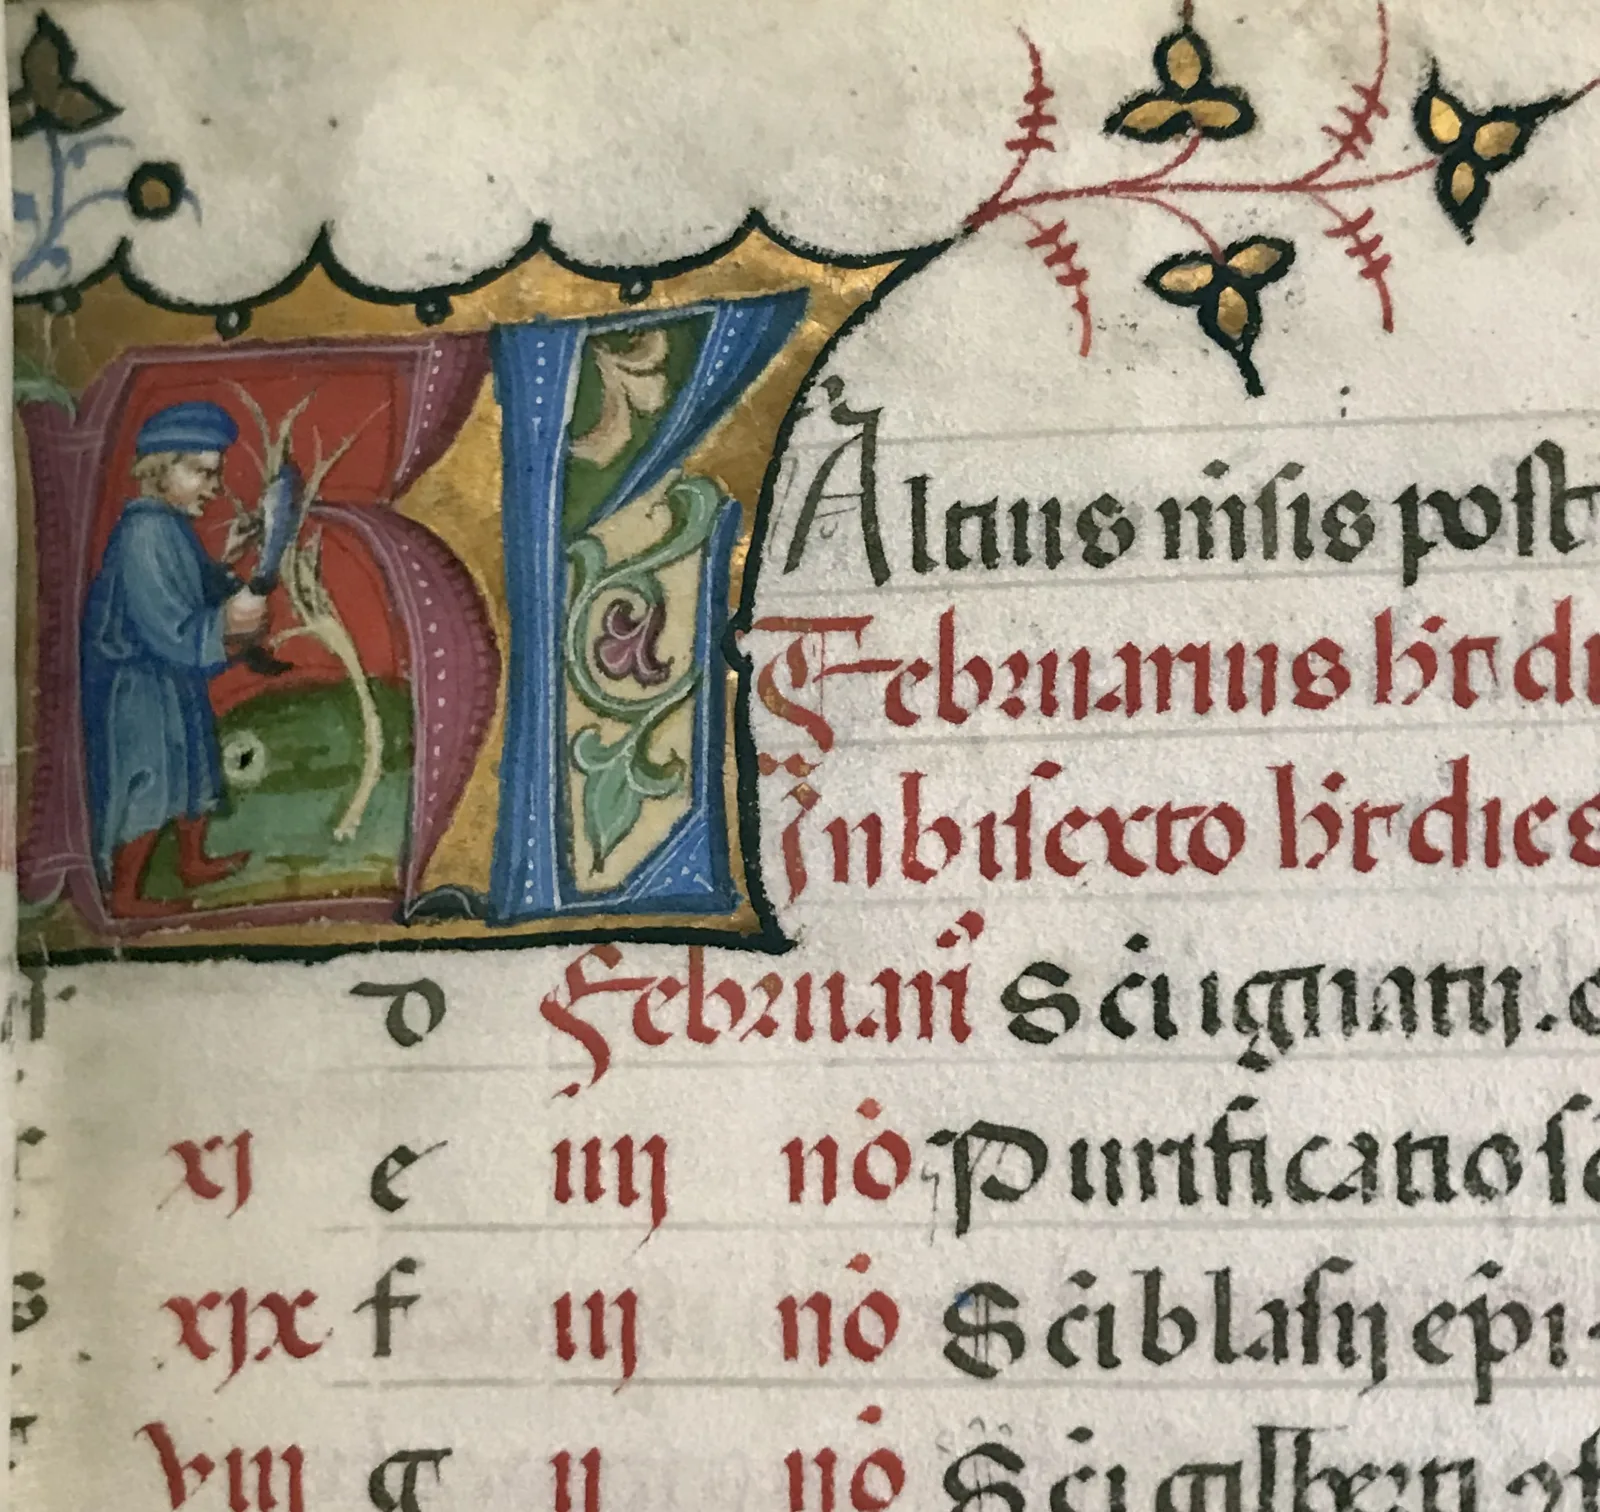 KL
Altius nisis post
Februarius ht di
In bisexto ht dies
d Februarii Sci ignatij. c
xj e iiij no Purificatio sc
xjx f iij no Sci blasij epi.
viij g ij no Sci gilberti